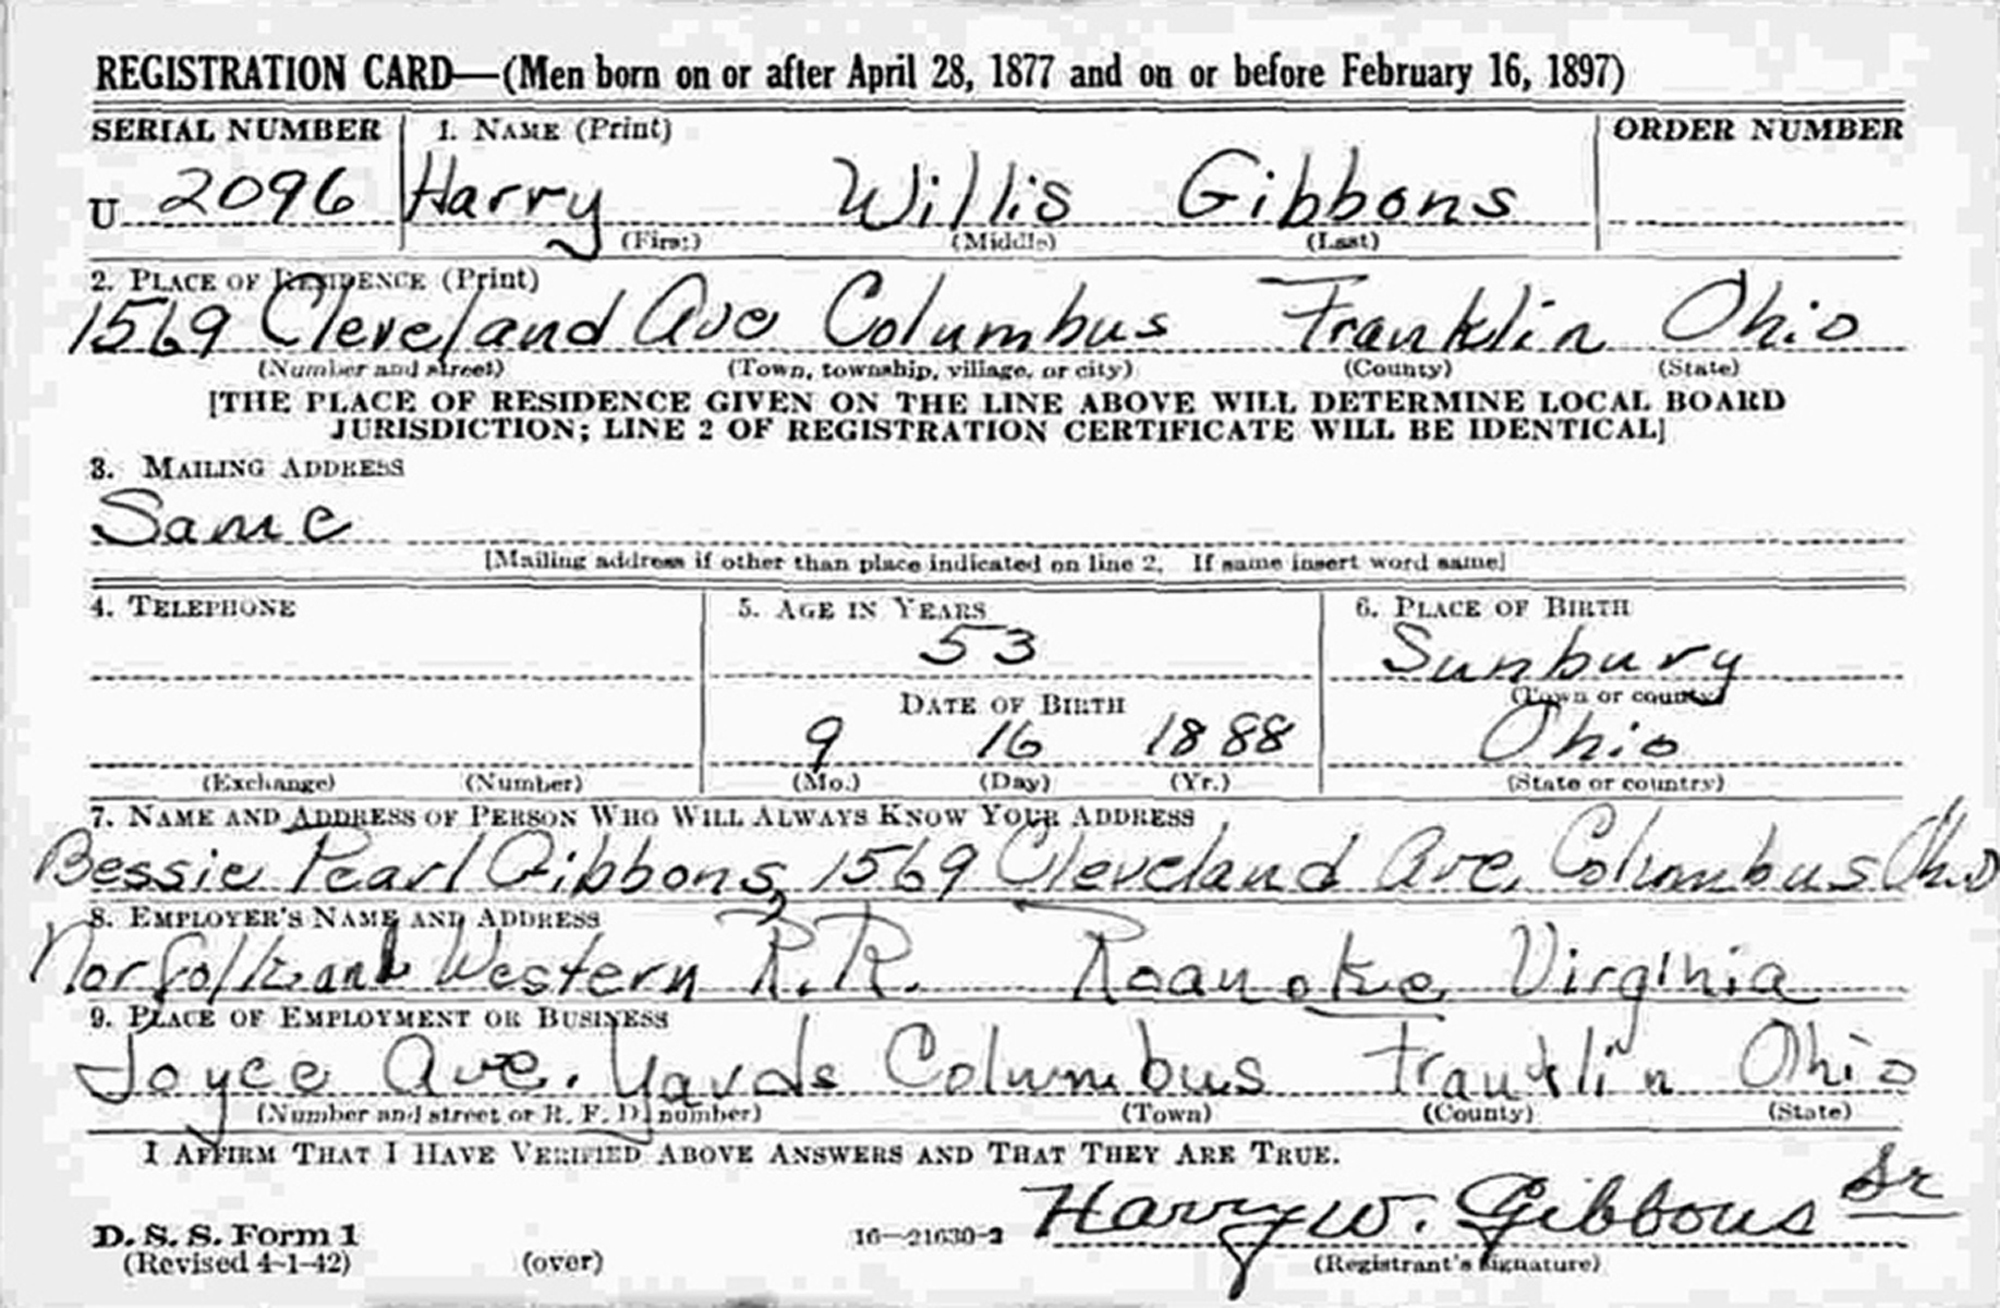 REGISTRATION CARD—(Men born on or after April 28, 1877 and on or before February 16, 1897)
SERIAL NUMBER 1. NAME (Print) ORDER NUMBER
U 2096 Harry Willis Gibbons
(First) (Middle) (Last)
2. PLACE OF RESIDENCE (Print)
1569 Cleveland Ave Columbus Franklin Ohio
(Number and street) (Town, township, village, or city) (County) (State)
[THE PLACE OF RESIDENCE GIVEN ON THE LINE ABOVE WILL DETERMINE LOCAL BOARD
JURISDICTION; LINE 2 OF REGISTRATION CERTIFICATE WILL BE IDENTICAL]
3. MAILING ADDRESS
Same
[Mailing address if other than place indicated on line 2. If same insert word same]
4. TELEPHONE 5. AGE IN YEARS 6. PLACE OF BIRTH
53 Sunbury
DATE OF BIRTH (Town or county)
9 16 1888 Ohio
(Exchange) (Number) (Mo.) (Day) (Yr.) (State or country)
7. NAME AND ADDRESS OF PERSON WHO WILL ALWAYS KNOW YOUR ADDRESS
Bessie Pearl Gibbons, 1569 Cleveland Ave, Columbus Ohio
8. EMPLOYER'S NAME AND ADDRESS
Norfolk and Western R.R. Roanoke Virginia
9. PLACE OF EMPLOYMENT OR BUSINESS
Joyce Ave. Yards Columbus Franklin Ohio
(Number and street or R. F. D. number) (Town) (County) (State)
I AFFIRM THAT I HAVE VERIFIED ABOVE ANSWERS AND THAT THEY ARE TRUE.
Harry W. Gibbons Sr
D. S. S. Form 1 16—21630-2
(Revised 4-1-42) (over) (Registrant's signature)